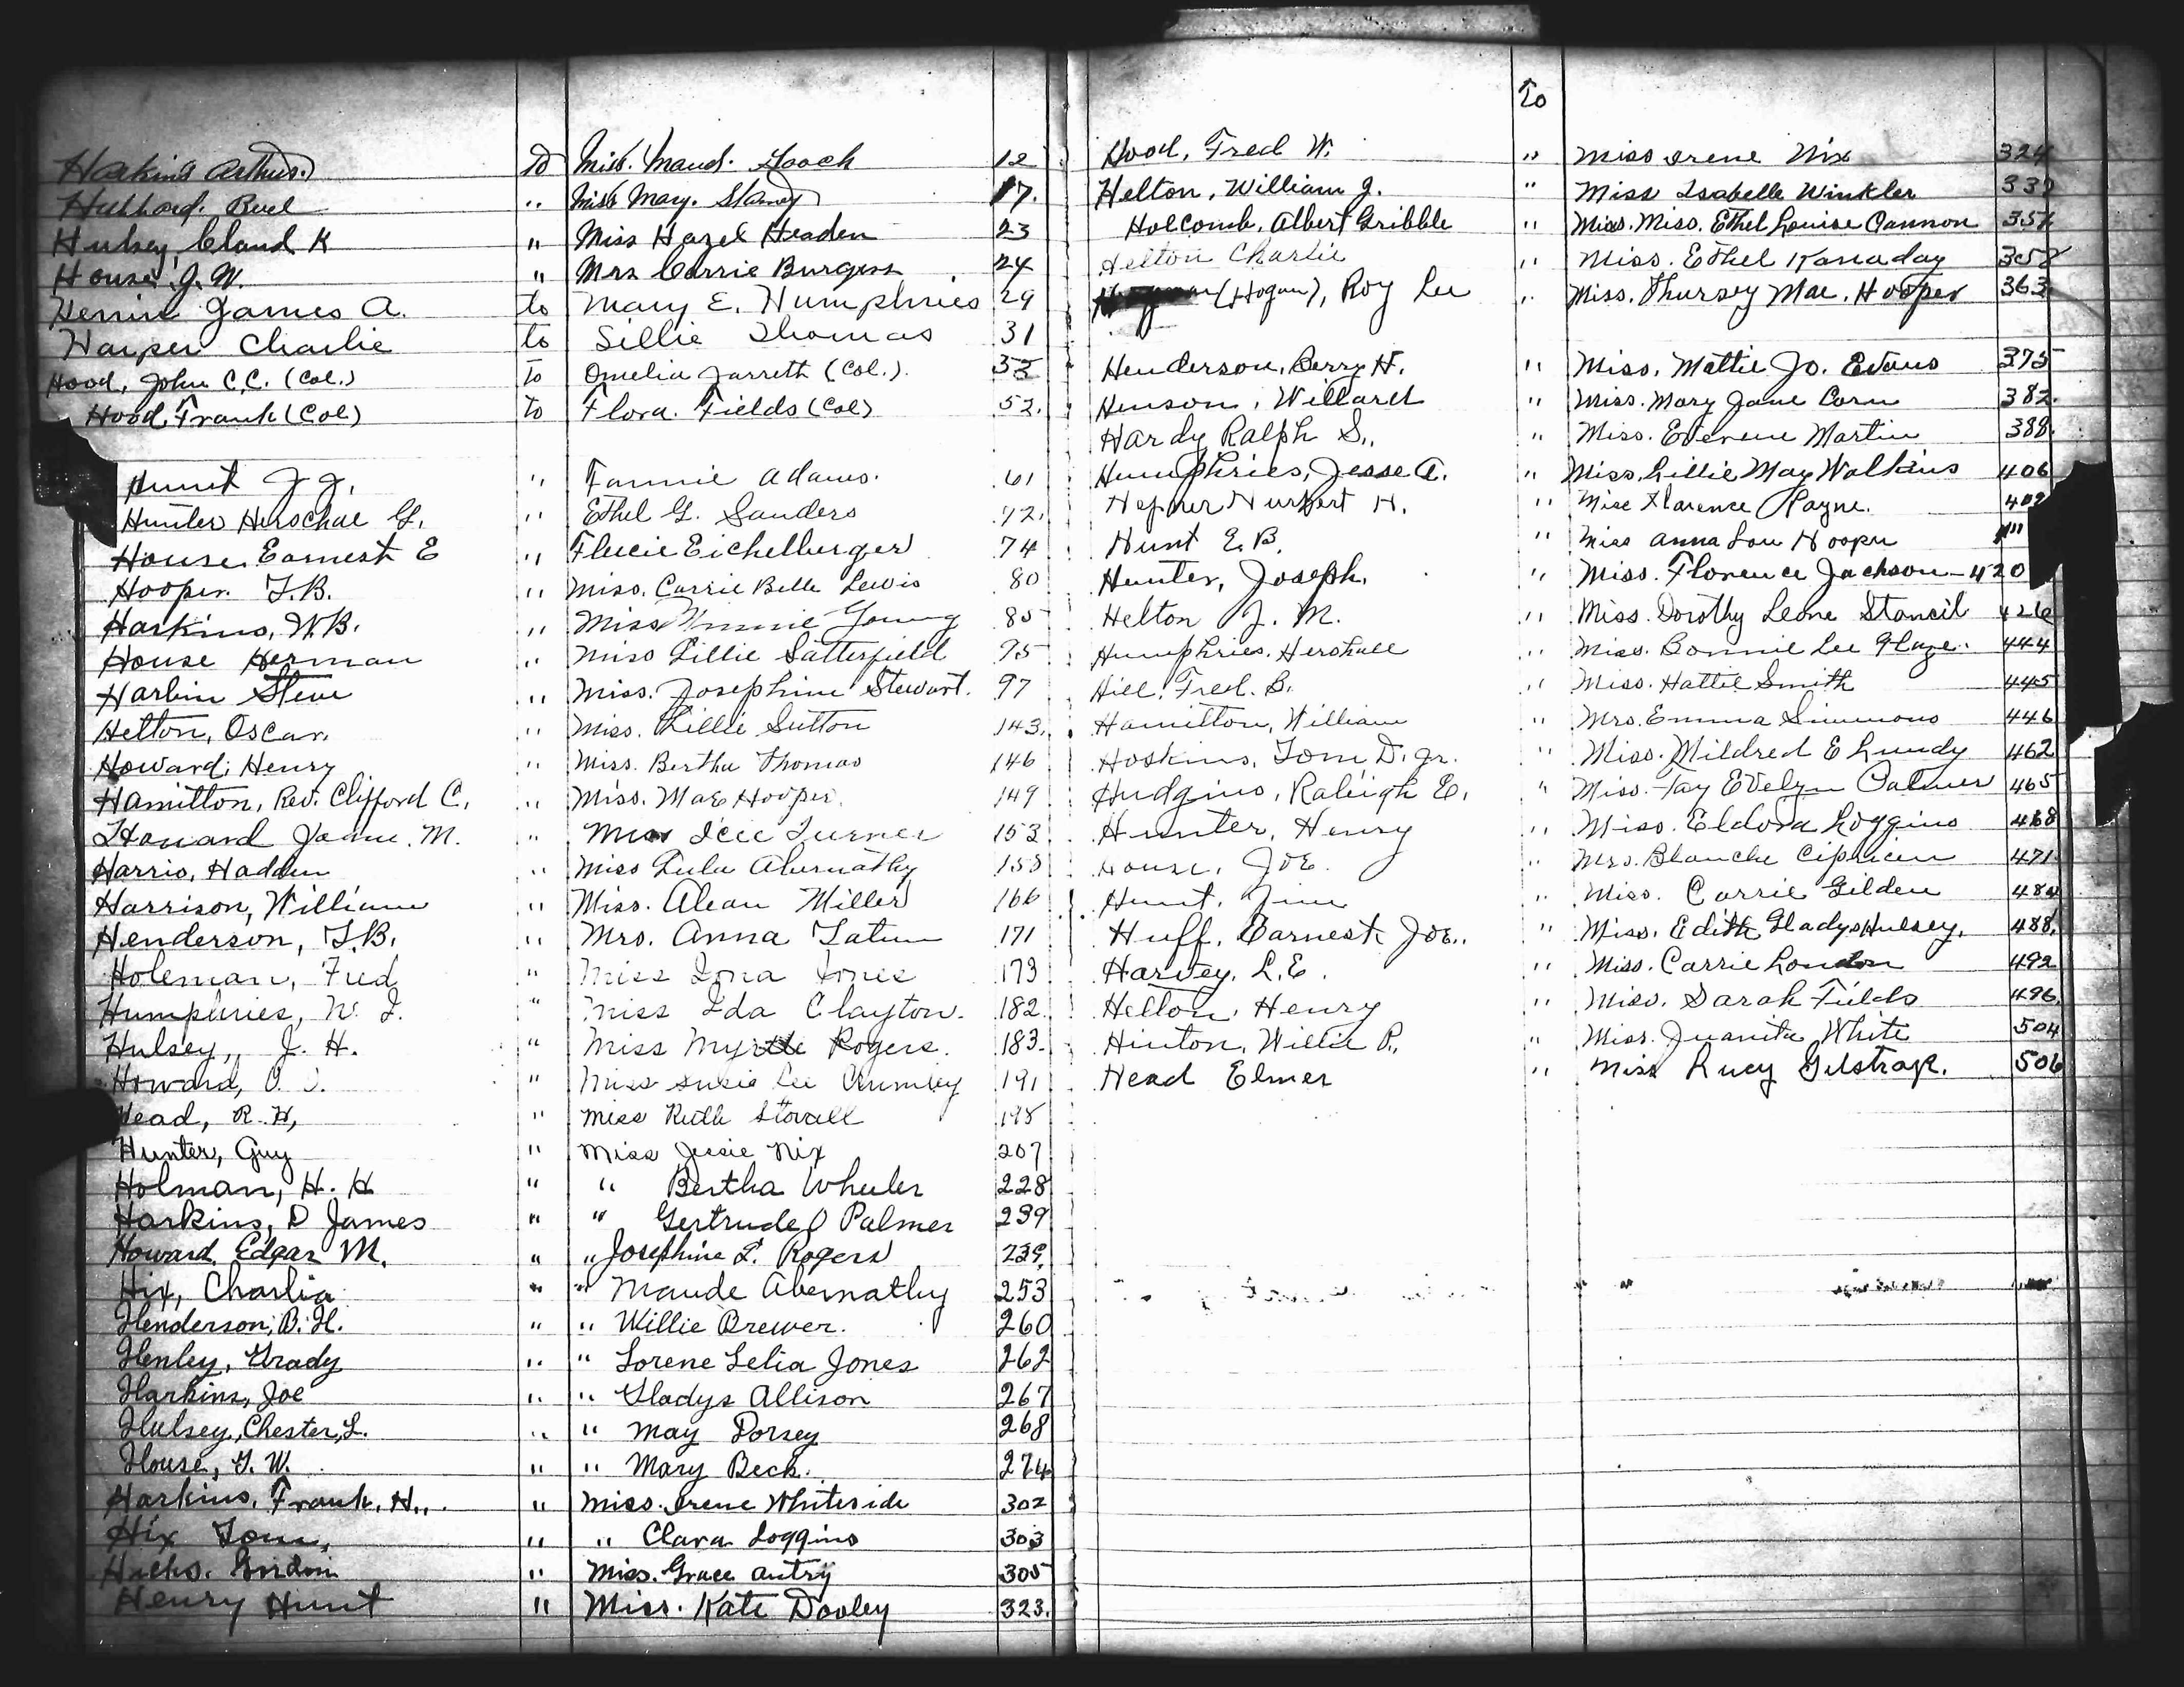 Harkins Arthur to Miss. Maud. Gooch 12
Hubbard. Buel " Miss Mary. 17.
Hulsey, Claud K " Miss Hazel Headen 23
House J. W. " Mrs Carrie Burgess 24
James A. to Mary E. Humphries 29
Harper Charlie to Lillie Thomas 31
Hood, John C.C. (Col.) to Omelia Jarreth (Col.).
Hood, Frank (Col) to Flora. Fields (Col) 52.
Hunt J J. " Fannie Adams. 61
Hunter Herschal G. " Ethel G. Sanders 72.
House. Earnest E " Flucie Eichelburger 74
Hooper. T.B. " Miss. Carrie Belle Lewis 80
Harkins, W.B. " Miss Minnie Young 85
House Herman " Miss Lillie Satterfield 95
Harbin Steve " Miss. Josephine Stewart. 97
Helton, Oscar. " Miss. Lillie Sutton 143.
Howard, Henry " Miss. Bertha Thomas 146
Hamilton, Rev. Clifford C. " Miss. Mae Hooper. 149
Howard M. " Icie Turner 153
Harris, Hadden " Miss Lula Abernathy 155
Harrison, William " Miss. Alean Miller 166
Henderson, T.B. " Mrs. Anna Tatum 171
Holeman, Fred " Miss Iona Jones 173
Humphries, W. J. " Miss Ida Clayton. 182
Hulsey, J. H. " Miss Myrtle Rogers. 183.
Howard, " Miss Susie Lee Crumley 191
Head, R. H, " Miss Ruth Stovall 195
Hunter, Guy " Miss Jessie Nix 207
Holman, H. H " " Bertha Wheeler 228
Harkins, D James " " Gertrude Palmer 239
Howard. Edgar M. " " Josephine L. Rogers 239.
Hix, Charlie " " Maude Abernathy 253
Henderson, B. H. " " Willie Brewer. 260
Henley, Grady " " Lorene Lelia Jones 262
Harkins, Joe " " Gladys Allison 267
Hulsey, Chester, L. " " May Dorsey 268
House, G. W. " " Mary Beck. 274
Harkins, Frank. H., " Miss. Irene Whiteside 302
Hix Tom, " " Clara Loggins 303
Gordon " Miss. Grace Autry 305
Henry Hunt " Miss. Kate Dooley 323.
To
Hood, Fred W. " Miss Irene Nix 324
Helton, William J. " Miss Isabelle Winkler
Holcomb, Albert Gribble " Miss. Miss. Ethel Louise Cannon
Helton Charlie " Miss. Ethel Kanaday 358
(Hogan), Roy Lee " Miss. Thursey Mae. Hooper 363
Henderson, Berry H. " Miss. Mattie Jo. Evans 375
Henson, Willard " Miss. Mary Jane Corn 382.
Hardy Ralph S., " Miss. Martin 388.
Humphries, Jesse A. " Miss. Lillie May Watkins 406
H. " Miss Payne. 409
Hunt E.B. " Miss Anna Lou Hooper
Hunter, Joseph. " Miss. Florence Jackson - 420
Helton J. M. " Miss. Dorothy Leone Stancil 426
Humphries. Hershall " Miss. Bonnie Lee Glaze. 444
Hill, Fred. B. " Miss. Hattie Smith 445
Hamilton, William " Mrs. Emma Simmons 446
Hoskins, Tom D. Jr. " Miss. Mildred E Lundy 462
Hudgins, Raleigh E. " Miss. Fay Evelyn Palmer 465
Hunter, Henry " Miss. Eldora Loggins 468
House, Joe. " Mrs. Blanche 471
Hunt, Jim " Miss. Carrie Gilden 484
Huff, Earnest Joe.. " Miss. Edith Gladys Hulsey. 488.
Harvey. L.E. " Miss. Carrie London 492
Helton, Henry " Miss. Sarah Fields 496.
Hinton, Willie P., " Miss. Juanita White 504
Head Elmer " Miss Lucy Gilstrap. 506